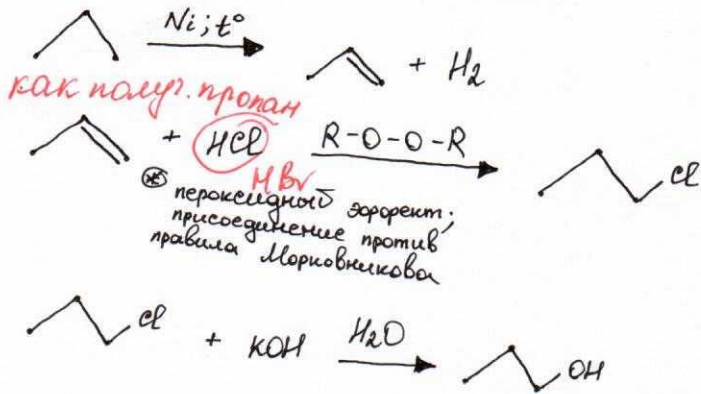 Ni; t°
+ H₂
как получ. пропан
+ HCl R-O-O-R Cl
HBr
* пероксидный эффект;
присоединение против
правила Морковникова
Cl + KOH H₂O OH